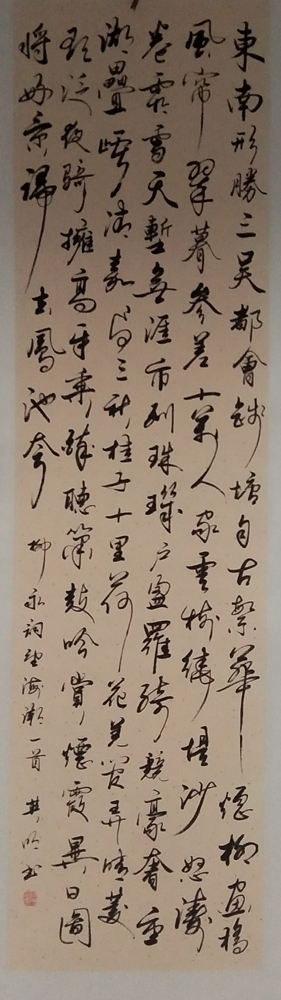 東南形勝三吳都會錢塘自古繁華煙柳畫橋
風帘翠幕參差十萬人家雲樹繞堤沙怒濤
卷霜雪天塹無涯市列珠璣戶盈羅綺競豪奢重
湖疊巘清嘉有三秋桂子十里荷花羌管弄晴菱
歌泛夜 擁高牙乘醉聽簫鼓吟賞煙霞異日圖
將好景歸去鳳池夸
柳永詞望海潮一首 書